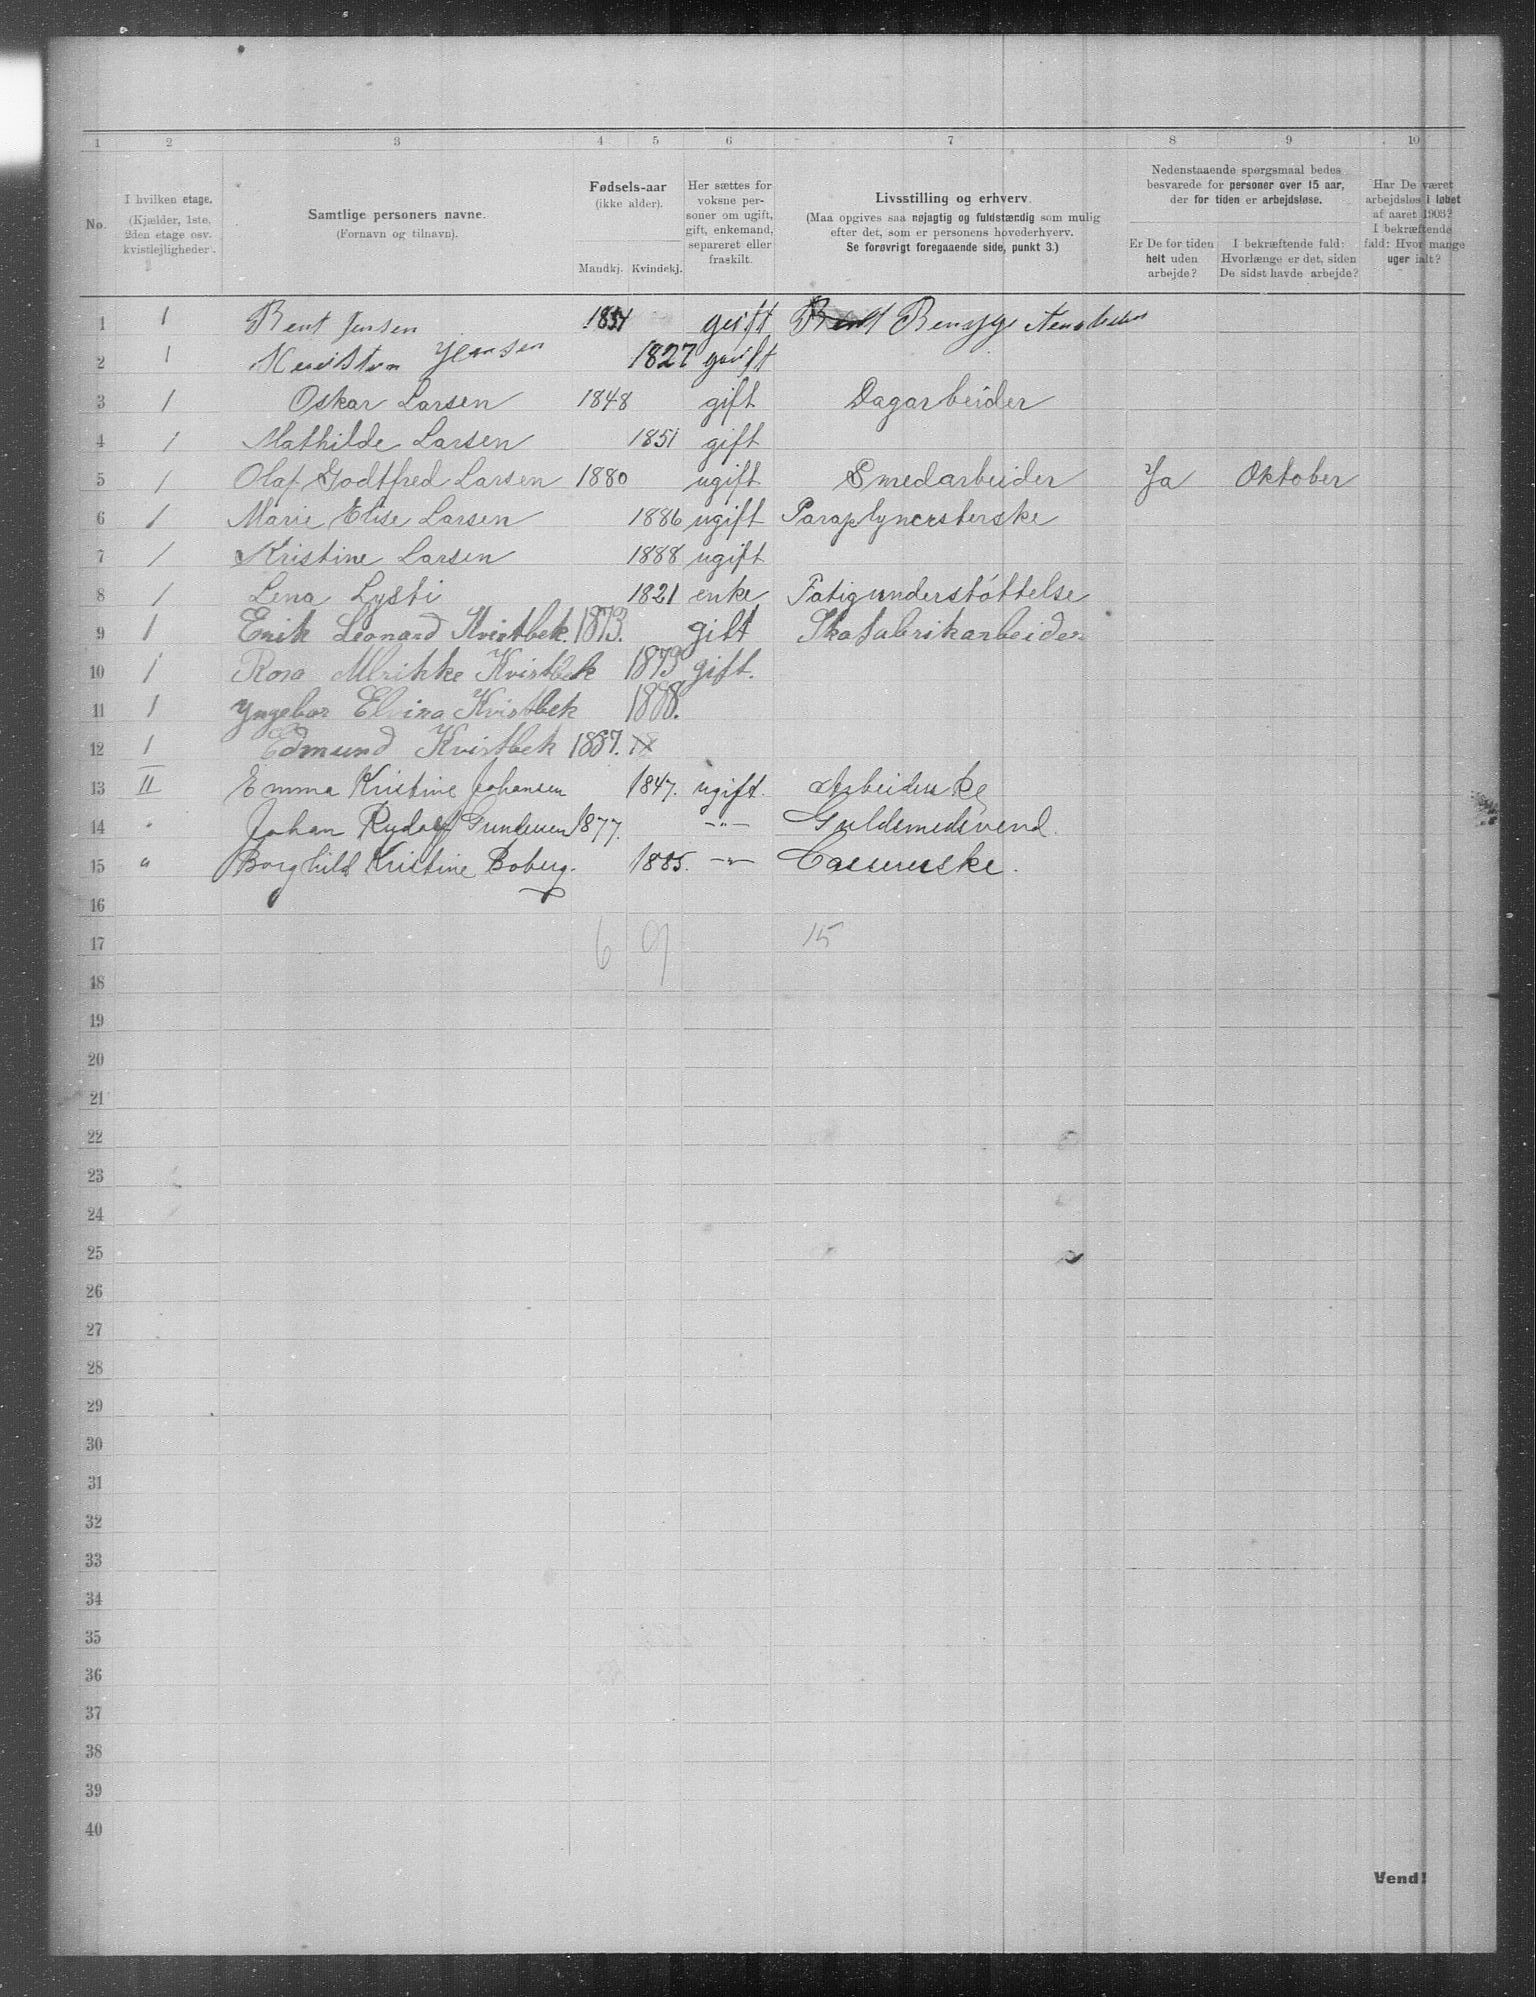 1 2 3 4 5 6 7 8 9 10
No.
I hvilken etage.
(Kjælder, 1ste, 2den etage osv. kvistlejligheder).
Samtlige personers navne.
(Fornavn og tilnavn).
Fødsels-aar
(ikke alder).
Mandkj. Kvindekj.
Her sættes for voksne personer om ugift, gift, enkemand, separeret eller fraskilt.
Livsstilling og erhverv.
(Maa opgives saa nøjagtig og fuldstændig som mulig efter det, som er personens hovederhverv.
Se forøvrigt foregaaende side, punkt 3.)
Nedenstaaende spørgsmaal bedes besvarede for personer over 15 aar, der for tiden er arbejdsløse.
Er De for tiden helt uden arbejde?
I bekræftende fald: Hvorlænge er det, siden De sidst havde arbejde?
Har De været arbejdsløs i løbet af aaret 1903? I bekræftende fald: Hvor mange uger ialt?
1 1 Bent Jensen gift
2 1 1827 gift
3 1 Oskar Larsen 1848 gift Dagarbeider
4 1 Mathilde Larsen 1851 gift
5 1 Olaf Godtfred Larsen 1880 ugift Smedarbeider Ja Oktober
6 1 Marie Elise Larsen 1886 ugift
7 1 Kristine Larsen 1888 ugift
8 1 Lena Lysti 1821 enke Fatigunderstøttelse
9 1 Erik Leonard Kvistbek. 1873. gift Skofabrikarbeider
10 1 Rosa Ulrikke Kvistbek 1873 gift.
11 1 Yngebor Elvina Kvistbek
12 1 Edmund Kvistbek
13 II Emma Kristine Johansen 1847. ugift. Arbeiderske
14 " Johan Rudolf Gundersen 1877. -"- Guldsmedsvend.
15 " Borghild Kristine Boberg. 1885. -"-
16
17 6 9 15
18
19
20
21
22
23
24
25
26
27
28
29
30
31
32
33
34
35
36
37
38
39
40
Vend!